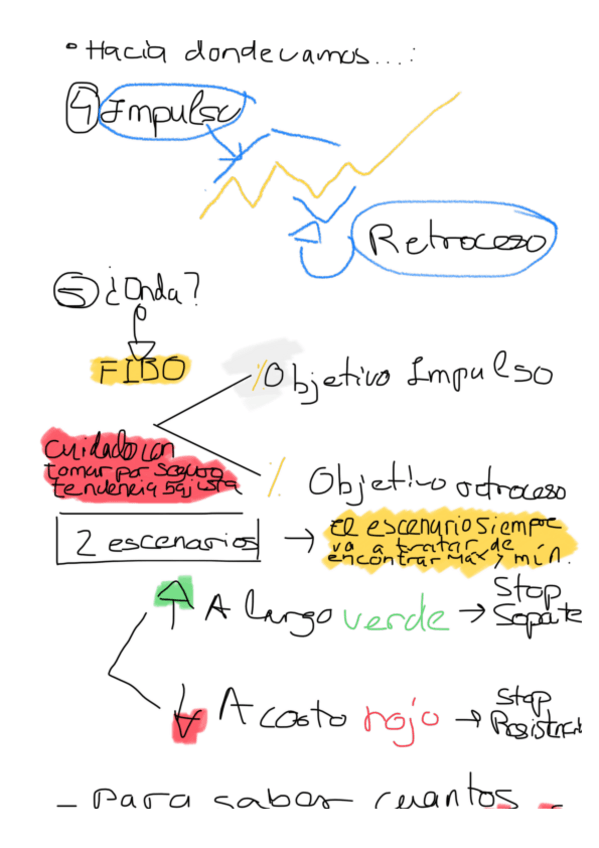 • Hacia donde vamos...:
4 Impulso
Retroceso
5 ¿Onda?
FIBO
% Objetivo Impulso
Cuidado con
tomar por seguro
tendencia bajista
% Objetivo retroceso
2 escenarios →
El escenario siempre
va a tratar de
encontrar Max y mín.
A largo verde → Stop
Soporte
A corto rojo → Stop
Resistenc
- Para saber cuantos -